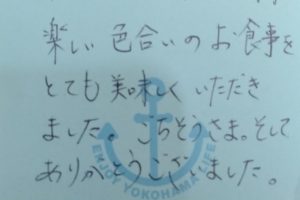 楽しい色合いのお食事を
とても美味しくいただき
ました。ごちそうさま。そして
ありがとうございました。
ENJOY YOKOHAMA LIFE